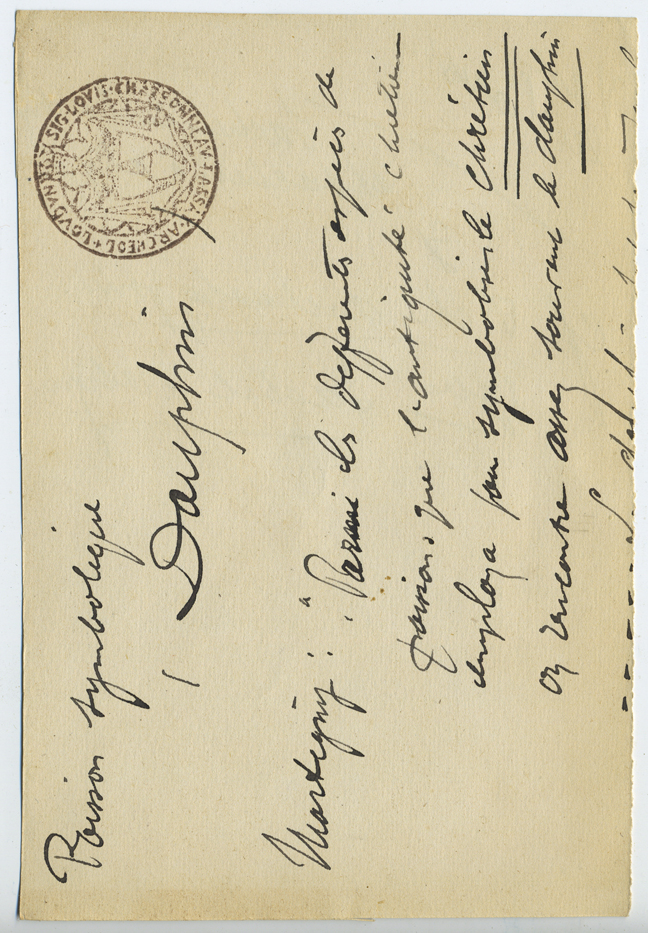 Poisson symbolique
Dauphin
SIG·LOVIS·CHARBONNEAU·LASSAY·ARCHEOL+LOVDVN
Martigny : "Parmi les différents espèces de
poissons que l'antiquité chrétienne
employa pour symboliser le Chrétien
on rencontre assez souvent le dauphin